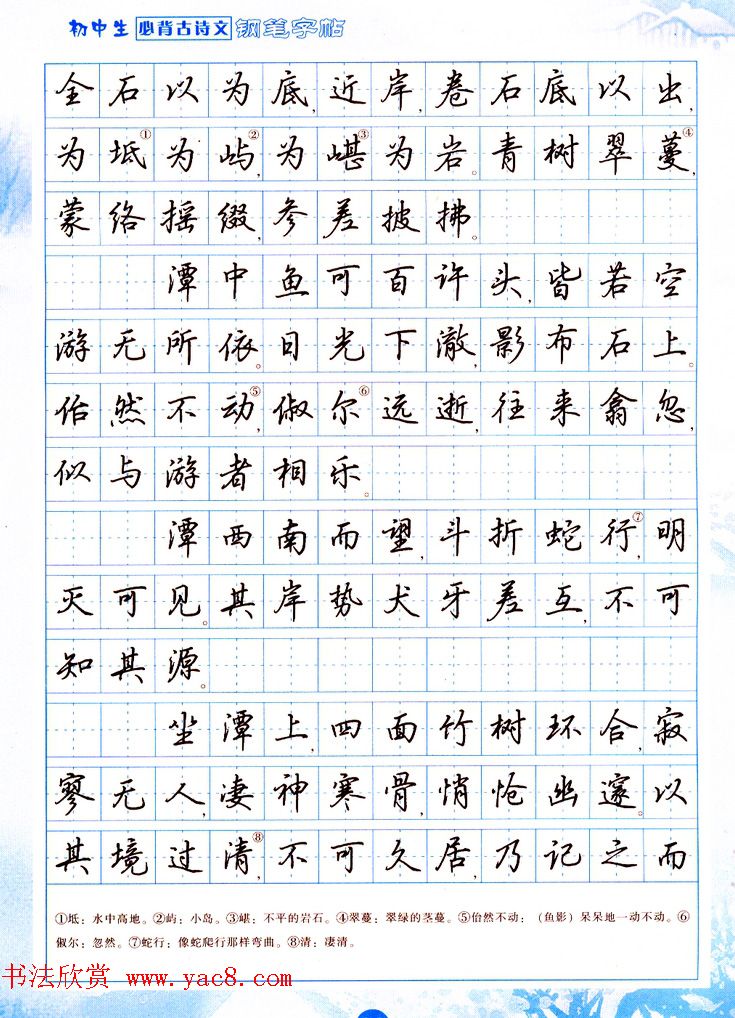 初中生必背古诗文钢笔字帖
全石以为底,近岸,卷石底以出,
为坻①为屿②,为嵁③为岩。青树翠蔓④,
蒙络摇缀,参差披拂。
潭中鱼可百许头,皆若空
游无所依。日光下澈,影布石上。
佁然不动⑤,俶尔⑥远逝,往来翕忽,
似与游者相乐。
潭西南而望,斗折蛇行⑦,明
灭可见。其岸势犬牙差互,不可
知其源。
坐潭上,四面竹树环合,寂
寥无人,凄神寒骨,悄怆幽邃。以
其境过清⑧,不可久居,乃记之而
①坻:水中高地。②屿:小岛。③嵁:不平的岩石。④翠蔓:翠绿的茎蔓。⑤佁然不动:(鱼影)呆呆地一动不动。⑥
俶尔:忽然。⑦蛇行:像蛇爬行那样弯曲。⑧清:凄清。
书法欣赏 www.yac8.com